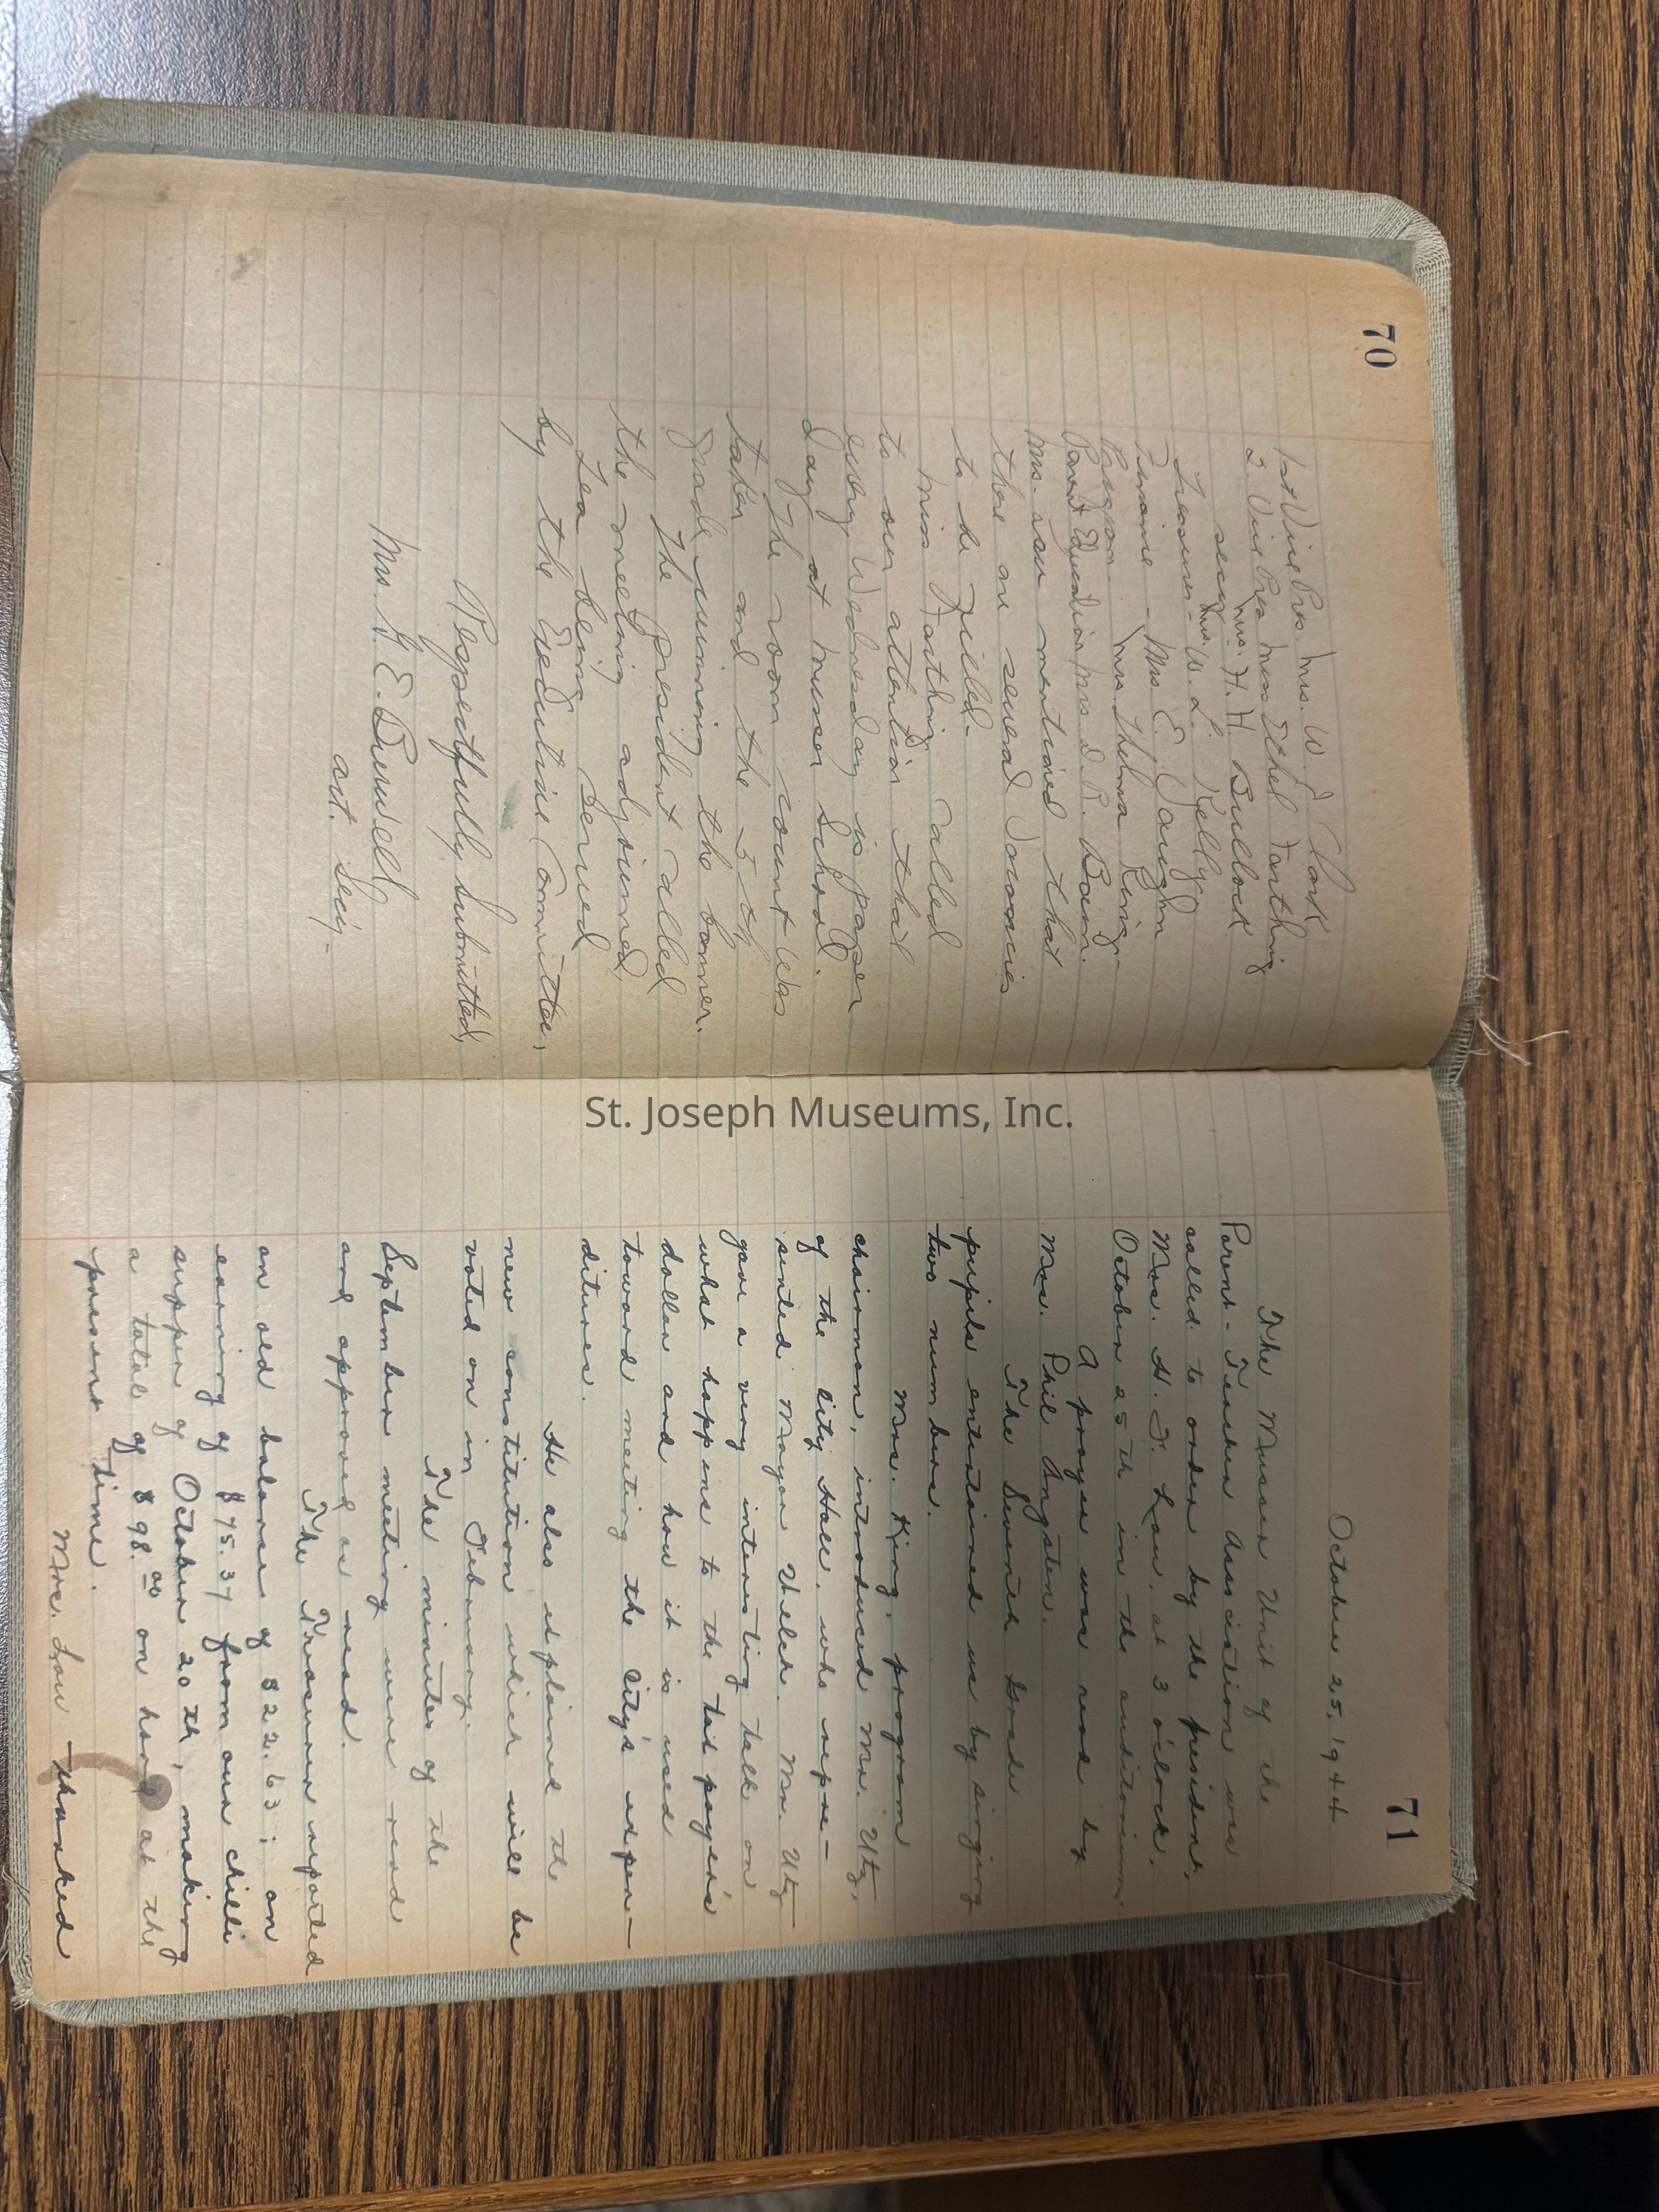 70
1st Vice Pres. Mrs. W. J. Clark
2. Vice Pres Miss Ethel Farthing
Secy. Mrs. H. H. Bullock
Treasurer - Mrs. W. L. Kelly
Finance - Mrs. E. Vaughn
Program - Mrs. Thelma King -
Parent Education Mrs. D. R. Bain.
Mrs. Lau mentioned that
there are several vacancies
to be filled.
Miss Farthing called
to our attention that
every Wednesday is paper
day at Musser School.
The room count was
taken and the 5th
grade winning the banner.
The president called
the meeting adjourned,
Tea being served
by the Executive Committee,
Respectfully Submitted,
Mrs. G. E. Burwell
act. Secy -
71
October 25, 1944
The Musser Unit of the
Parent-Teacher Association was
called to order by the president,
Mrs. H. F. Lau, at 3 o'clock,
October 25th in the auditorium.
A prayer was read by
Mrs. Phil Angsten.
The Seventh Grade
pupils entertained us by singing
two numbers.
Mrs. King, program
chairman, introduced Mr. Utz,
of the City Hall, who repre-
sented Mayor Welch. Mr. Utz
gave a very interesting talk on
what happens to the tax payer's
dollar and how it is used
toward meeting the City's expen-
ditures.
He also explained the
new constitution which will be
voted on in February.
The minutes of the
September meeting were read
and approved as read.
The Treasurer reported
an old balance of $22.63; an
earning of $75.37 from our chilli
supper of October 20th, making
a total of $98.00 on hand at the
present time.
Mrs. Lau thanked
St. Joseph Museums, Inc.